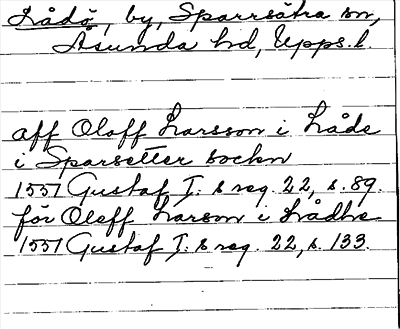 Lådö, by, Sparrsätra sn,
Åsunda hd, Upps. l.
aff Oloff Larsson i Låde
i Sparsetter sockn
1551 Gustaf I:s reg. 22, s. 89.
för Oleff Larson i Lådhe
1551 Gustaf I:s reg. 22, s. 133.